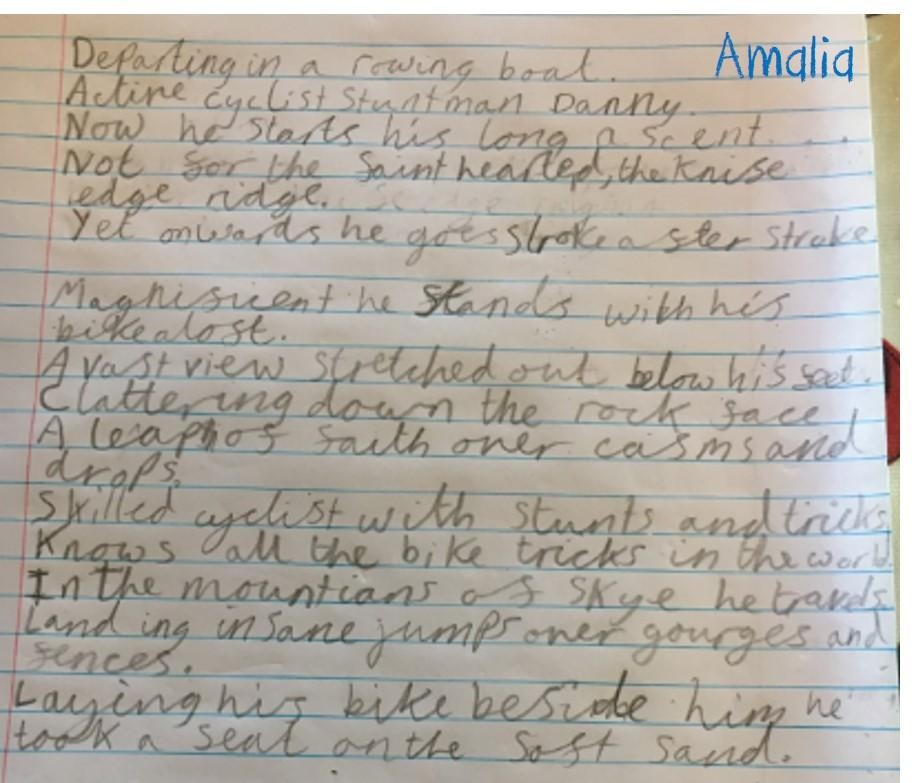 Amalia
Departing in a rowing boat.
Active cyclist stuntman Danny.
Now he starts his long ascent....
Not for the faint hearted, the knife
edge ridge.
Yet onwards he goes stroke after stroke
Magnificent he stands with his
bike aloft.
A vast view stretched out below his feet.
Clattering down the rock face
A leap of faith over casms and
drops.
Skilled cyclist with stunts and tricks,
Knows all the bike tricks in the world.
In the mountians of Skye he travels
Landing insane jumps over gourges and
fences.
Laying his bike beside him he
took a seat on the soft sand.